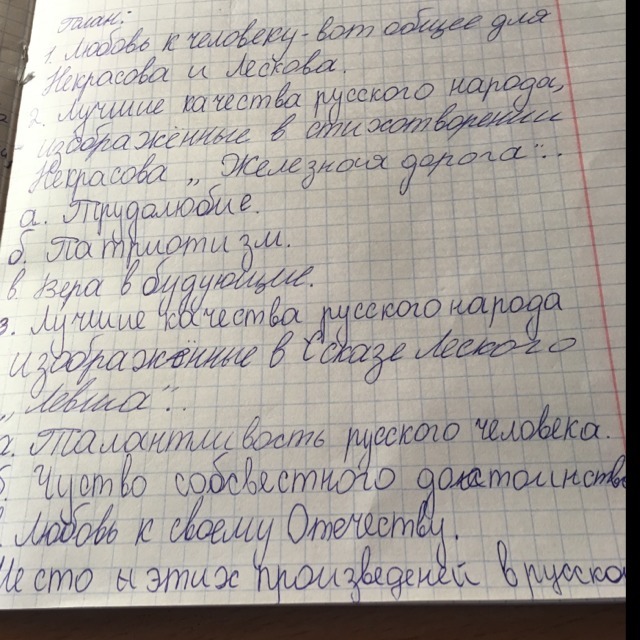 План:
1. Любовь к человеку - вот общее для
Некрасова и Лескова.
2. Лучшие качества русского народа,
изображённые в стихотворении
Некрасова „Железная дорога“:.
а. Трудолюбие.
б. Патриотизм.
в. Вера в будующие.
3. Лучшие качества русского народа
изображённые в Сказе Леского
„Левша“:.
а. Талантливость русского человека.
б. Чуство собсвестного достоинство
в. Любовь к своему Отечеству.
Место этих произведеней в русско